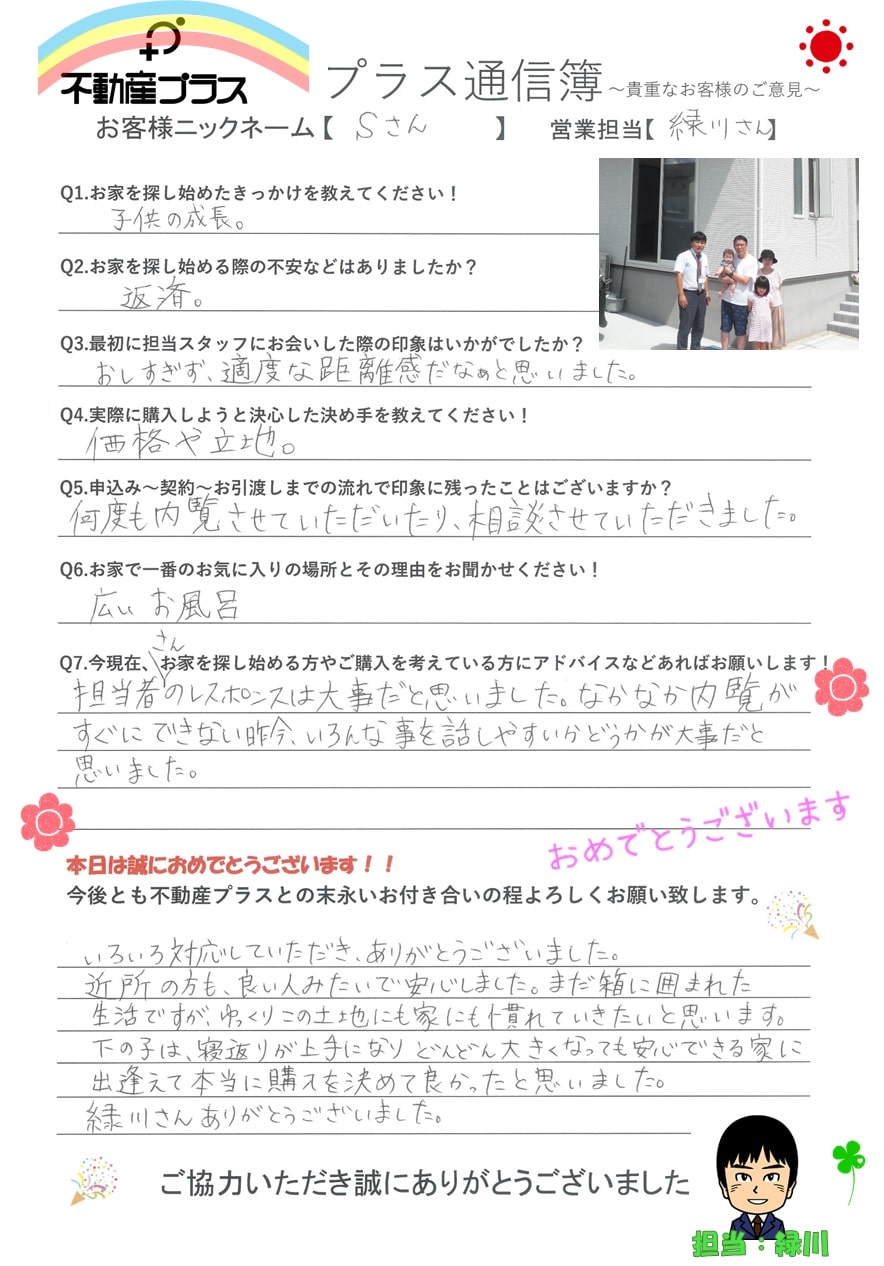 不動産プラス
プラス通信簿 ～貴重なお客様のご意見～
お客様ニックネーム【 Sさん 】 営業担当【 緑川さん】
Q1.お家を探し始めたきっかけを教えてください！
子供の成長。
Q2.お家を探し始める際の不安などはありましたか？
返済。
Q3.最初に担当スタッフにお会いした際の印象はいかがでしたか？
おしすぎず、適度な距離感だなぁと思いました。
Q4.実際に購入しようと決心した決め手を教えてください！
価格や立地。
Q5.申込み～契約～お引渡しまでの流れで印象に残ったことはございますか？
何度も内覧させていただいたり、相談させていただきました。
Q6.お家で一番のお気に入りの場所とその理由をお聞かせください！
広いお風呂
Q7.今現在、お家を探し始める方やご購入を考えている方にアドバイスなどあればお願いします！
さん
担当者のレスポンスは大事だと思いました。なかなか内覧が
すぐにできない昨今、いろんな事を話しやすいかどうかが大事だと
思いました。
おめでとうございます
本日は誠におめでとうございます！！
今後とも不動産プラスとの末永いお付き合いの程よろしくお願い致します。
いろいろ対応していただき、ありがとうございました。
近所の方も、良い人みたいで安心しました。まだ箱に囲まれた
生活ですが、ゆっくりこの土地にも家にも慣れていきたいと思います。
下の子は、寝返りが上手になりどんどん大きくなっても安心できる家に
出逢えて本当に購入を決めて良かったと思いました。
緑川さんありがとうございました。
ご協力いただき誠にありがとうございました
担当：緑川